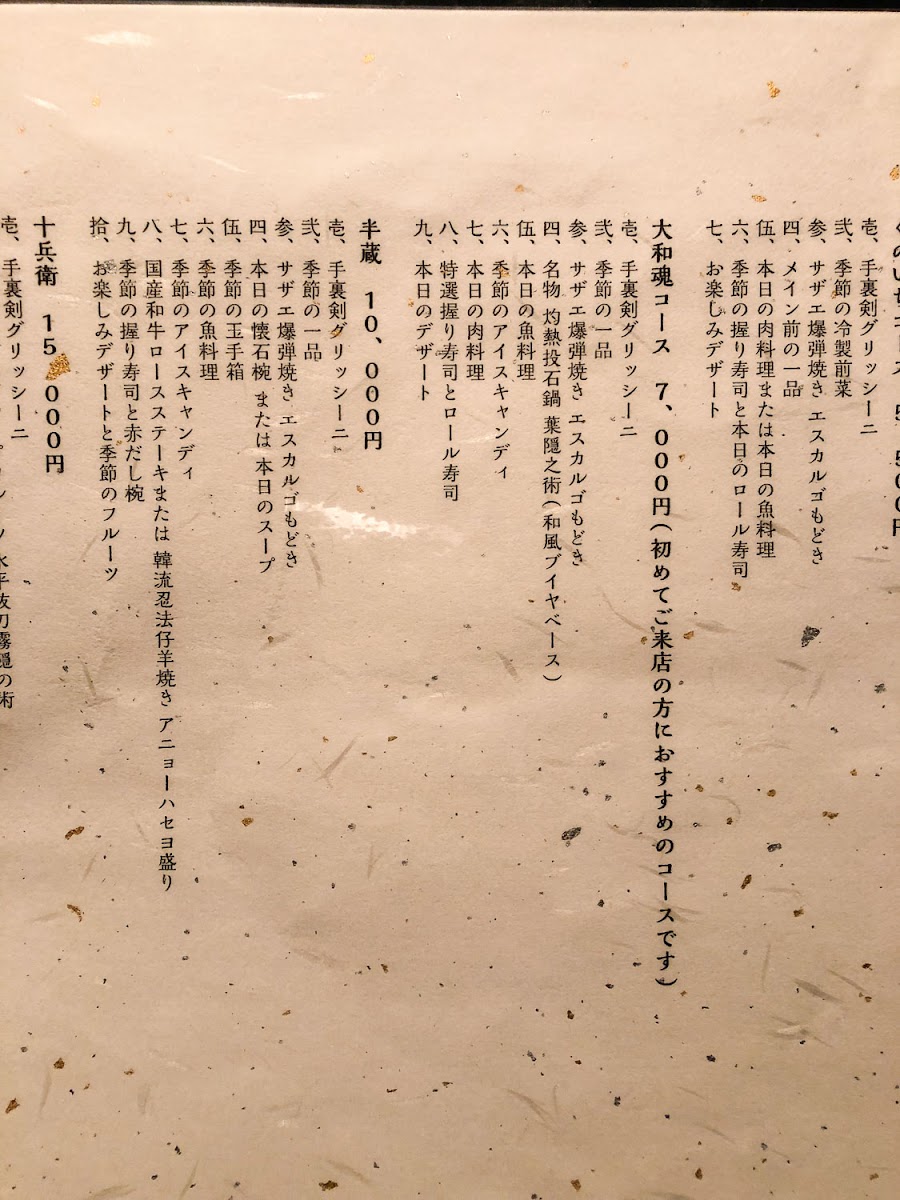 壱、手裏剣グリッシーニ
弐、季節の冷製前菜
参、サザエ爆弾焼き エスカルゴもどき
四、メイン前の一品
伍、本日の肉料理または本日の魚料理
六、季節の握り寿司と本日のロール寿司
七、お楽しみデザート
大和魂コース 7、000円(初めてご来店の方におすすめのコースです)
壱、手裏剣グリッシーニ
弐、季節の一品
参、サザエ爆弾焼き エスカルゴもどき
四、名物 灼熱投石鍋 葉隠之術(和風ブイヤベース)
伍、本日の魚料理
六、季節のアイスキャンディ
七、本日の肉料理
八、特選握り寿司とロール寿司
九、本日のデザート
半蔵 10、000円
壱、手裏剣グリッシーニ
弐、季節の一品
参、サザエ爆弾焼き エスカルゴもどき
四、本日の懐石椀 または 本日のスープ
伍、季節の玉手箱
六、季節の魚料理
七、季節のアイスキャンディ
八、国産和牛ロースステーキまたは 韓流忍法仔羊焼き アニョーハセヨ盛り
九、季節の握り寿司と赤だし椀
拾、お楽しみデザートと季節のフルーツ
十兵衛 15、000円
壱、手裏剣グリッシーニ
水平抜刀霧隠の術